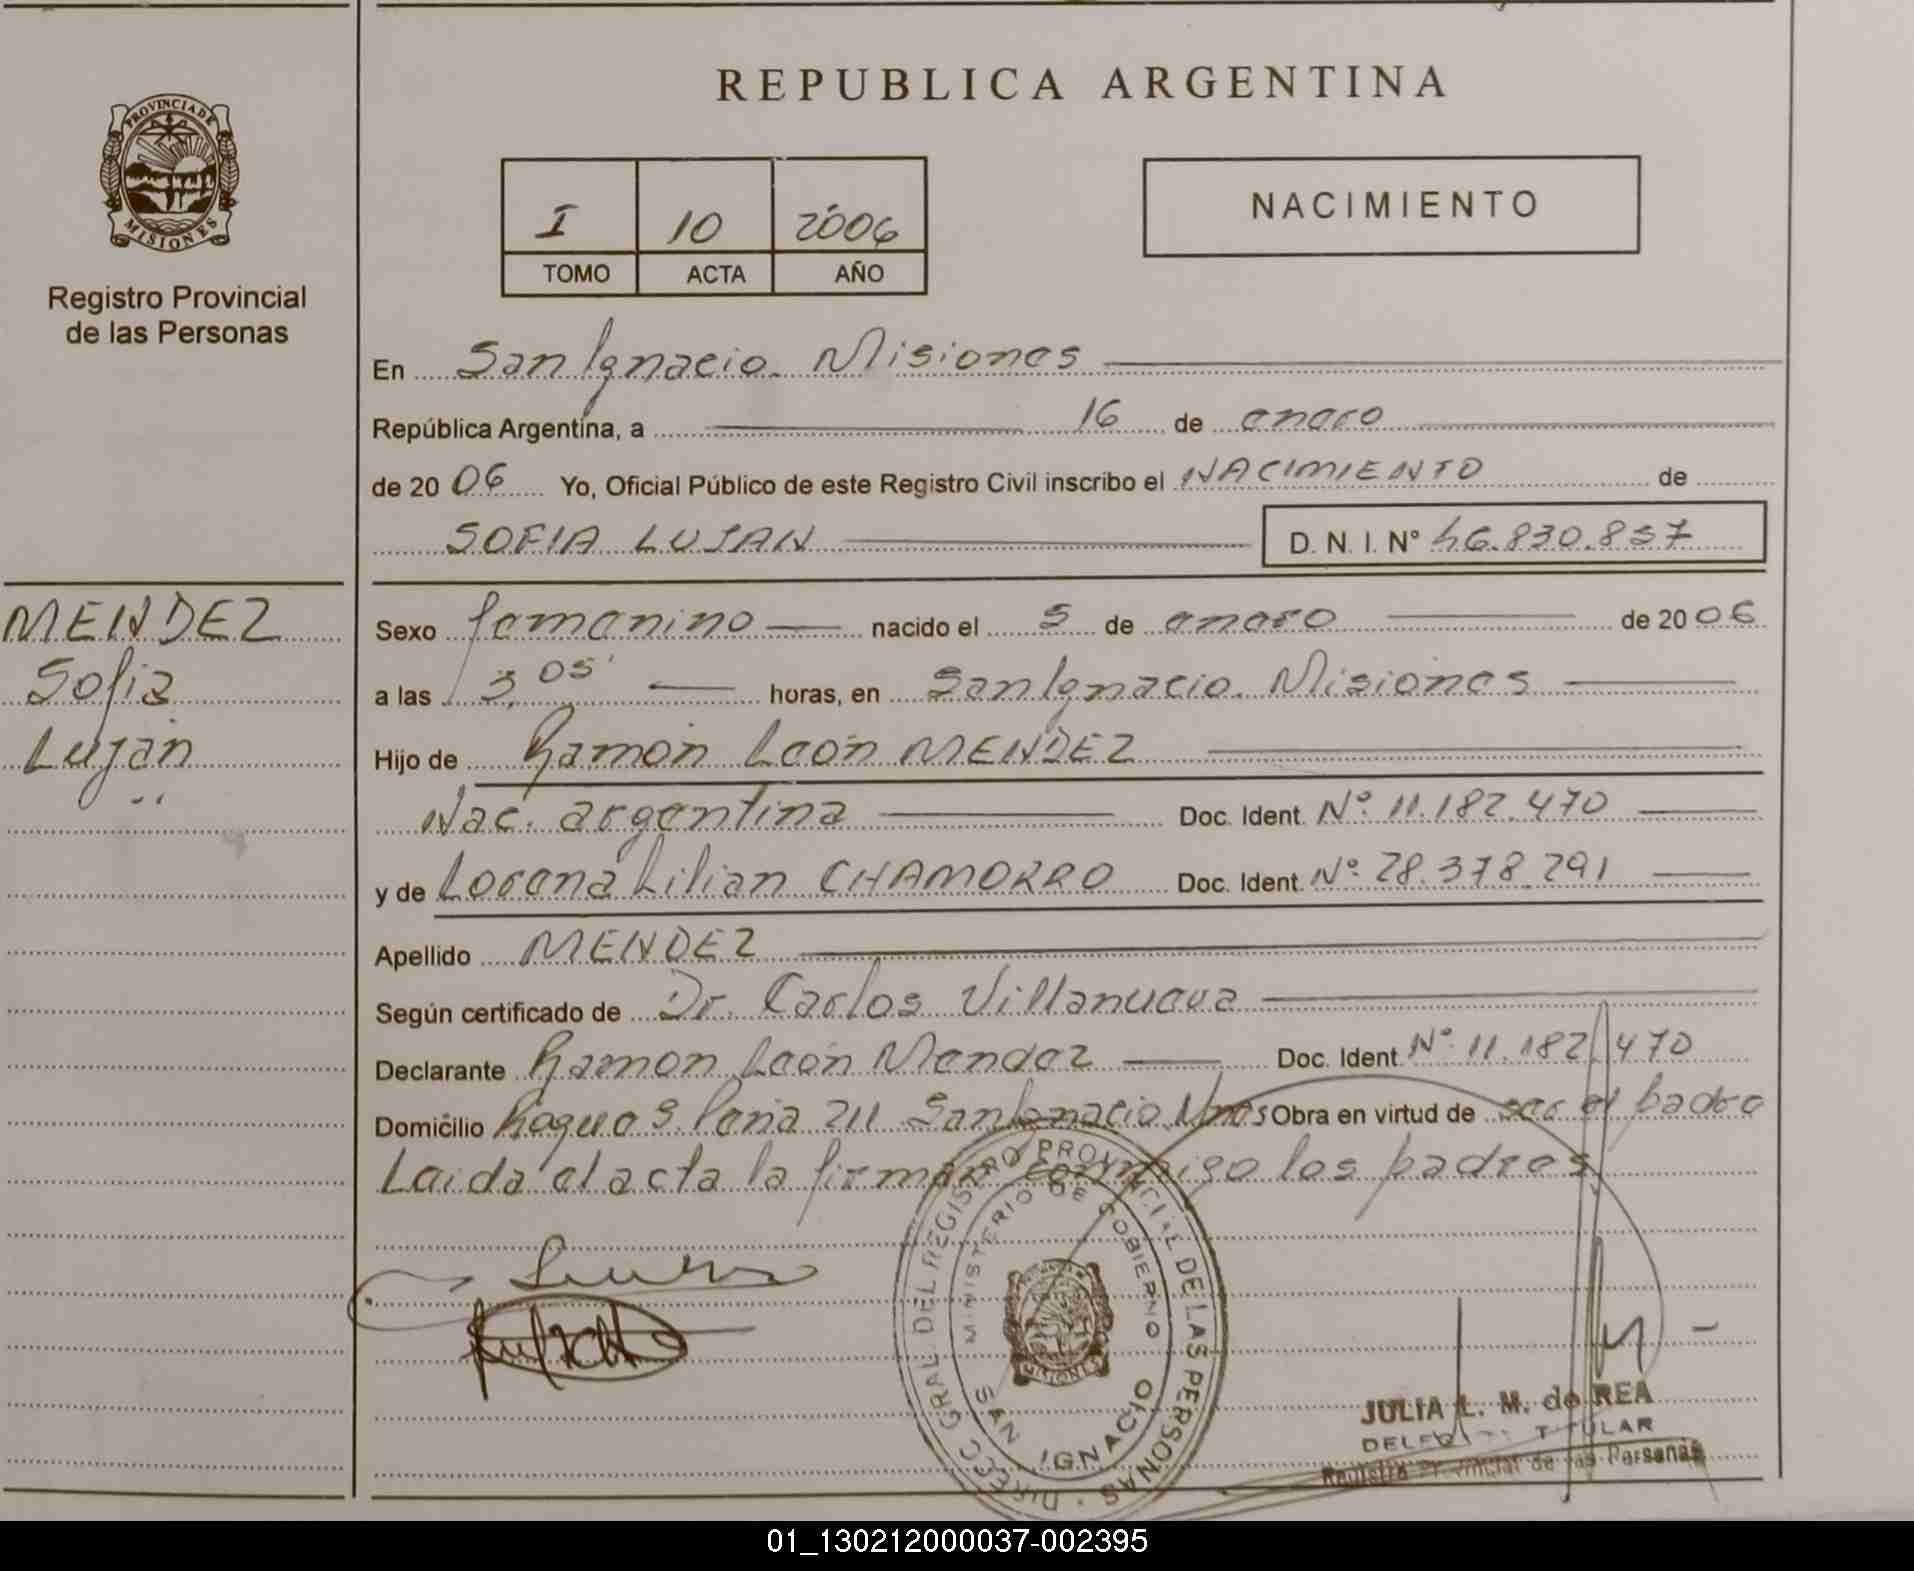 REPUBLICA ARGENTINA
PROVINCIA DE
MISIONES
Registro Provincial
de las Personas
I 10 2006
TOMO ACTA AÑO
NACIMIENTO
En San Ignacio. Misiones
República Argentina, a 16 de enero
de 2006 Yo, Oficial Público de este Registro Civil inscribo el NACIMIENTO de
SOFIA LUJAN D. N. I. Nº 46.830.857
MENDEZ
Sofia
Luján
Sexo femenino nacido el 5 de enero de 2006
a las 3,05' horas, en San Ignacio. Misiones
Hijo de Ramón León MENDEZ
Nac. argentina Doc. Ident. Nº 11.182.470
y de Lorena Lilian CHAMORRO Doc. Ident. Nº 28.378.291
Apellido MENDEZ
Según certificado de Dr. Carlos Villanueva
Declarante Ramon León Mendez Doc. Ident. Nº 11.182.470
Domicilio Roque S. Peña 211 San Ignacio Mnes Obra en virtud de ser el padre
Leida el acta la firman conmigo los padres
DIRECC GRAL. DEL REGISTRO PROVINCIAL DE LAS PERSONAS
MINISTERIO DE GOBIERNO
MISIONES
SAN IGNACIO
JULIA L. M. de REA
TITULAR
Registro Provincial de las Personas
01_130212000037-002395